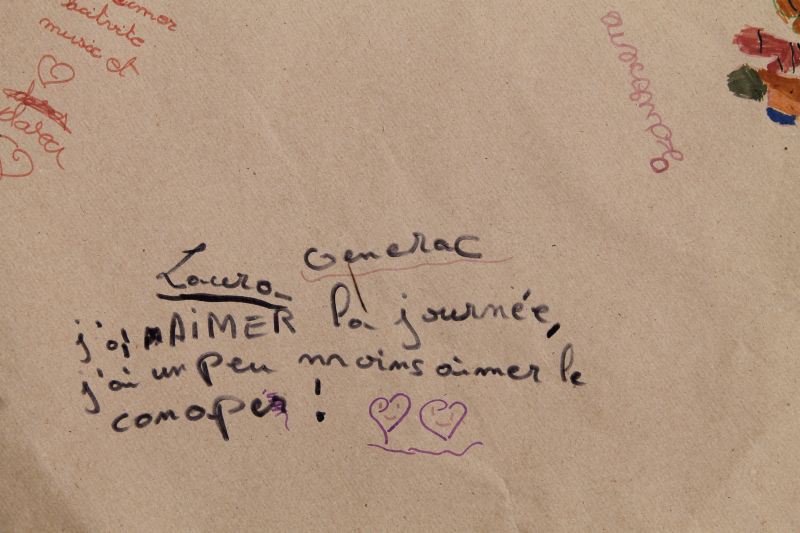 aimer
musée et
Laura Generac
j'ai AiMER la journée,
j'ai un peu moins aimer le
canoper !